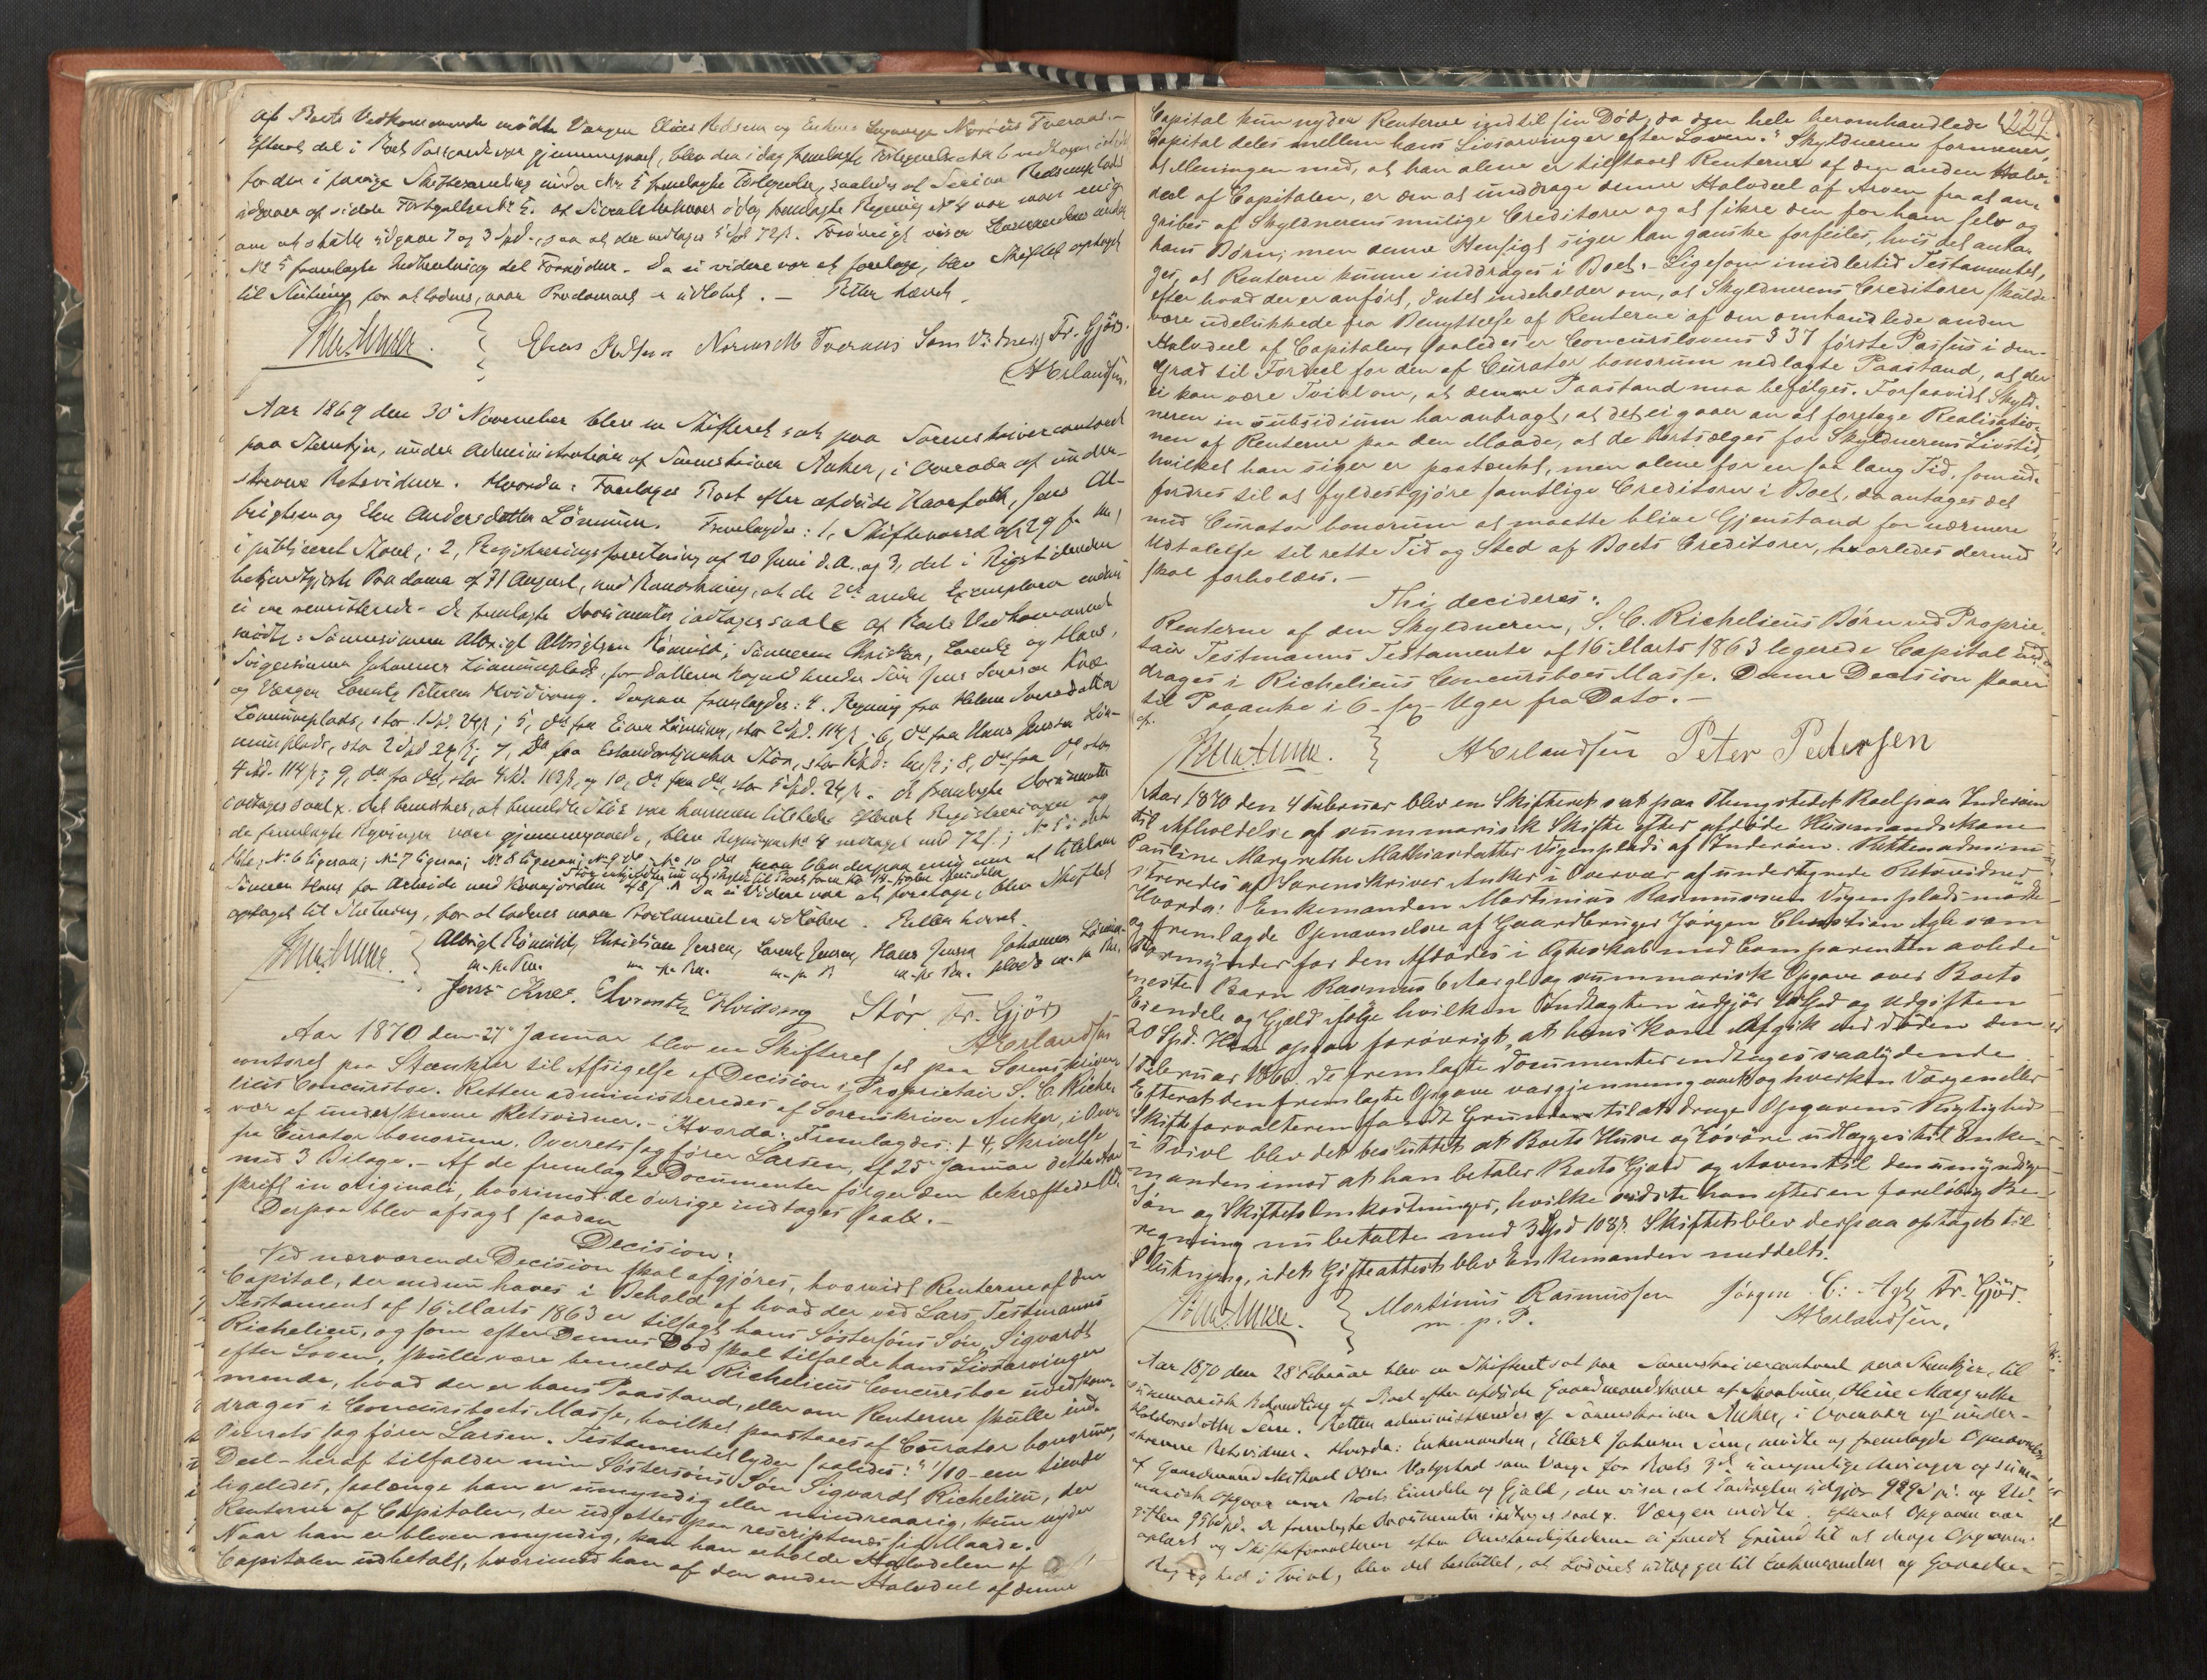 af Boets Vedkommende mødte Værgen Elias Redsem og Enkens Laugværge Norius Tveraas.-
Efterat det i Boet Passerede var gjennemgaaet, blev den i dag fremlagte
for den i forrige Skiftesamling under No 5 fremlagte
af sidste at i dag fremlagte Regning No 4 var man enig
om at skulle udgaae 7 og 3 Spd., saa at der 5 Spd 72 s. Forøvrigt viser under
No 5 fremlagte det Fornødne. Da ei videre var at foretage, blev Skiftet optaget
til Slutning for at sluttes, naar Proclamaet er udløbet. — Retten hævet.
Elias Redsem Norius M Tveraas Som Vidner: Fr. Gjör.
A Erlandsen.
Aar 1869 den 30te November blev en Skifteret sat paa Sorenskrivercontoret
paa Stenkjer, under Administration af Sorenskriver Anker, i Overvær af under-
skrevne Retsvidner. Hvorda: Foretages Boet efter afdøde Jens Al-
brigtsen og Elen Andersdatter Lönnum. Fremlagdes: 1, af 29 f. M.,
i publiceret Stand; 2, Registreringsforretning af 20 Juni d.A. og 3, det i Rigstidenden
bekjendtgjorte Proclama af 31 August, med Paaskrivning, at de 2de andre Exemplarer endnu
ei var remitterede. De fremlagte Documenter indtages saal. Af Boets Vedkommende
mødte: Albrigt Albrigtsen Römuld; Sønnerne Christian, Lorentz og Hans,
Svigersønnen Johannes Lönnumsplads, for Datteren Søn Jens Jensen Kvæ
og Værgen Lorentz Petersen Hvidsveng. Derpaa fremlagdes: 4. Regning fra
Lönnumsplads, stor 1 Spd. 24 s; 5, do fra Lönnum, stor 2 Spd. 114 s; 6, do fra Hans Jensen Lön-
numsplads, stor 2 Spd 24 s; 7, Do fra Stör, stor 8, do fra Do, stor
4 Spd. 114 s; 9, do fra do, stor 4 Spd. 103 s, og 10, do fra do, stor 5 Spd. 24 s. De fremlagte Documenter
indtages saal. Det bemærkes, at Stör var kommen tilstede. Efterat Registreringen og
de fremlagte Regninger vare gjennemgaaede, blev Regningen No 4 nedsat med 72 s; No 5 i det
Hele; No 6 ligesaa; No 7 ligesaa; No 8 ligesaa; No 9 Do No 10 do man blev derpaa enig om at tilstaa
Sønnen Hans for Arbeide med Da ei Videre var at foretage, blev Skiftet
optaget til Slutning, for at sluttes naar Proclamaet er udløbet. Retten hævet.
Albrigt Römuld, Christian Jensen, Lorentz Jensen, Hans Jensen Johannes Lönnum-
m. p. Pen. m. p. Pen. m. p. P. m. p. Pen. plads m. p. Pen.
Jens Kvæ. Lorentz Hvidsveng Stör Fr. Gjör
A Erlandsen
Aar 1870 den 27de Januar blev en Skifteret sat paa Sorenskriver-
contoret paa Stenkjer til Afsigelse af Decision i Proprietair S. C. Riche-
lieus Concursboe. Retten administreredes af Sorenskriver Anker, i Over-
vær af underskrevne Retsvidner.- Hvorda: Fremlagdes: 1-4, Skrivelse
fra Curator bonorum, Overretssagfører Larsen, af 25de Januar dette Aar
med 3 Bilage.- Af de fremlagte Documenter følger den bekræftede Af-
skrift in originali, hvorimod de øvrige indtages saal. —
Derpaa blev afsagt saadan
Decision:
Ved nærværende Decision skal afgjøres, hvorvidt Renterne af den
Capital, der endnu haves i Behold af hvad der ved Lars Testmanns
Testament af 16 Marts 1863 er tillagt hans Søstersøns Søn, Sigvardt
Richelieu, og som efter Dennes Død skal tilfalde hans Livsarvinger
efter Loven, skulle være bemeldte Richelieus Concursboe uvedkom-
mende, hvad der er hans Paastand, eller om Renterne skulle ind-
drages i Concursboets Masse, hvilket paastaaes af Curator bonorum,
Overretssagfører Larsen. Testamentet lyder saaledes: "1/10 - een tiende
Deel - heraf tilfalder min Søstersøns Søn Sigvardt Richelieu, der
ligeledes, saalænge han er umyndig eller mindreaarig, kun nyder
Renterne af Capitalen, der udsættes paa rescriptmæssig Maade.
Naar han er bleven myndig, kan han erholde Halvdelen af
Capitalen udbetalt, hvorimod han af den anden Halvdeel af denne
224.
Capital kun nyder Renterne indtil sin Død, da den hele heromhandlede
Capital deles mellem hans Livsarvinger efter Loven." Skyldneren formener,
at Meningen med, at han alene er tilstaaet Renterne af den anden Halv-
deel af Capitalen, er den at unddrage denne Halvdeel af Arven fra at an-
gribes af Skyldnerens mulige Creditorer og at sikre den for ham selv og
hans Børn; men denne Hensigt siger han ganske forfeiles, hvis det anta-
ges, at Renterne kunne inddrages i Boet.- Ligesom imidlertid Testamentet,
efter hvad der er anført, Intet indeholder om, at Skyldnerens Creditorer skulde
være udelukkede fra Benyttelse af Renterne af den omhandlede anden
Halvdeel af Capitalen, saaledes er Concurslovens § 37 første Passus i den-
grad til Fordeel for den af Curator bonorum nedlagte Paastand, at der
ei kan være Tvivl om, at denne Paastand maa befølges. Forsaavidt Skyld-
neren in subsidium har andragt, at det ei gaaer an at foretage Realisatio-
nen af Renterne paa den Maade, at de bortsælges for Skyldnerens Livstid,
hvilket han siger er paatænkt, men alene for en saa lang Tid, som ud-
fordres til at fyldestgjøre samtlige Creditorer i Boet, da antages det
med Curator bonorum at maatte blive Gjenstand for nærmere
Udtalelse til rette Tid og Sted af Boets Creditorer, hvorledes dermed
skal forholdes.—
Thi decideres:
Renterne af den Skyldneren, S. C. Richelieus Børn ved Proprie-
tair Testmanns Testamente af 16 Marts 1863 legerede Capital ind-
drages i Richelieus Concursboes Masse. Denne Decision staaer
til Paaanke i 6 - sex - Uger fra Dato.—
A Erlandsen Peter Pedersen
Aar 1870 den 4 Februar blev en Skifteret sat paa Thingstedet Roel paa Inderöen
til Afholdelse af summarisk Skifte efter afdøde Husmandskone
Pauline Margrethe Mathiasdatter Vigenplads af Inderøen. Retten admini-
streredes af Sorenskriver Anker i Overvær af undertegnede Retsvidner.
Hvorda: Enkemanden Martinius Rasmussen Vigenplads mødte
og fremlagde Opnævnelse af Gaardbruger Jørgen Christian Agle som
Formynder for den Afdødes i Ægteskab med Comparenten avlede
neste Barn Rasmus 6 Aar gl og summarisk Opgave over Boets
Eiendele og Gjæld ifølge hvilken Indtægten udgjör Spd og Udgiften
20 Spd. Han opgav forøvrigt, at hans Kone afgik ved døden den
1 Februar 186. De fremlagte Documenter indtages saalydende
Efterat den fremlagte Opgave var gjennemgaaet og hverken Værgen eller
Skifteforvalteren fandt Grund til at drage Opgavens Rigtighed
i Tvivl blev det besluttet at Boets Huse og Løsøre udlægges til Enke-
manden imod at han betaler Boets Gjæld og Arven til den umyndige
Søn og Skiftets Omkostninger, hvilke sidste han efter en foreløbig Be-
regning nu betalte med 3 Spd 108 s. Skiftet blev derpaa optaget til
Slutning, idet Gifteattest blev Enkemanden meddelt.
Martinus Rasmussen Jörgen C: Agle Fr. Gjör.
m. p. P. A Erlandsen.
Aar 1870 den 28 Februar blev en Skifteret sat paa Sorenskrivercontoret paa Stenkjer, til
summarisk Behandling af Boet efter afdøde Gaardmandskone af Oline Margrethe
Sem. Retten administreredes af Sorenskriver Anker, i Overvær af under-
skrevne Retsvidner. Hvorda: Enkemanden, Ellert Johnsen Sem, mødte og fremlagde Opnævnelse
af Gaardmand Mikael Olsen som Værge for Boets 3de umyndige Arvinger og sum-
marisk Opgave over Boets Eiendele og Gjæld, der viser, at Indtægten udgjør og Ud-
giften De fremlagte Documenter indtages saal. Værgen mødte. Efterat Opgaven var
oplæst og Skifteforvalteren efter Omstændighederne ei fandt Grund til at drage Opgavens
Rigtighed i Tvivl, blev det besluttet, at Løsöret udlægges til Enkemanden og Gaarden